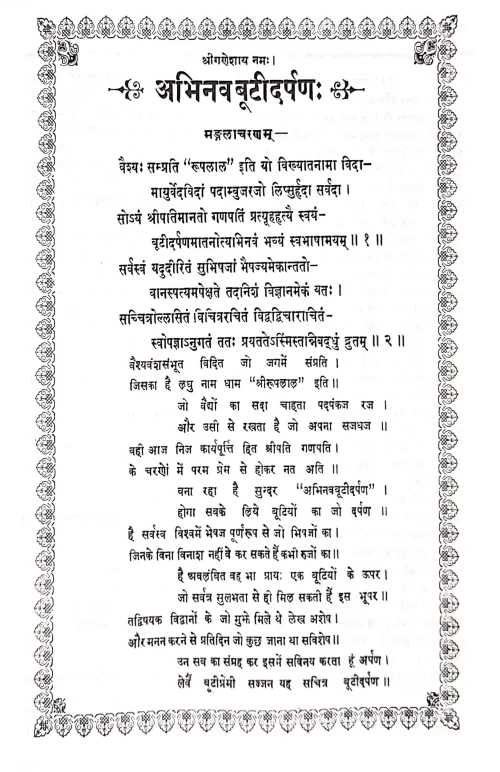 श्रीगणेशाय नमः।
अभिनवबूटीदर्पणः
मङ्गलाचरणम्—
वैश्यः सम्प्रति “रूपलाल” इति यो विख्यातनामा विदा–
मायुर्वेदविदां पदाम्बुजरजो लिप्सुर्हृदा सर्वदा ।
सोऽयं श्रीपतिमानतो गणपतिं प्रत्यूहहृत्यै स्वयं–
बूटीदर्पणमातनोत्यभिनवं भव्यं स्वभाषामयम् ॥ १ ॥
सर्वस्वं यदुदीरितं सुभिषजां भैषज्यमेकान्ततो–
वानस्पत्यमपेक्षते तदनिशं विज्ञानमेकं यतः ।
सच्चित्रोल्लसितं विचित्ररचितं विद्वद्विचाराचितं–
स्वोपज्ञाऽनुगतं ततः प्रयततेऽस्मिंस्तन्निबद्धुं द्रुतम् ॥ २ ॥
वैश्यवंशसंभूत विदित जो जगमें संप्रति ।
जिसका है लघु नाम धाम “श्रीरूपलाल” इति ॥
जो वैद्यों का सदा चाहता पदपंकज रज ।
और उसी से रखता है जो अपना सजधज ॥
वही आज निज कार्यपूर्त्ति हित श्रीपति गणपति ।
के चरणों में परम प्रेम से होकर नत अति ॥
बना रहा है सुन्दर “अभिनवबूटीदर्पण” ।
होगा सबके लिये बूटियों का जो दर्पण ॥
है सर्वस्व विश्वमें भेषज पूर्णरूप से जो भिषजों का ।
जिनके विना विनाश नहीं वे कर सकते हैं कभी रुजों का ॥
है अवलंबित वह भा प्रायः एक बूटियों के ऊपर ।
जो सर्वत्र सुलभता से ही मिल सकती हैं इस भूपर ॥
तद्विषयक विद्वानों के जो मुझे मिले थे लेख अशेष ।
और मनन करने से प्रतिदिन जो कुछ जाना था सविशेष ॥
उन सब का संग्रह कर इसमें सविनय करता हूं अर्पण ।
लेवें बूटीप्रेमी सज्जन यह सचित्र बूटीदर्पण ॥